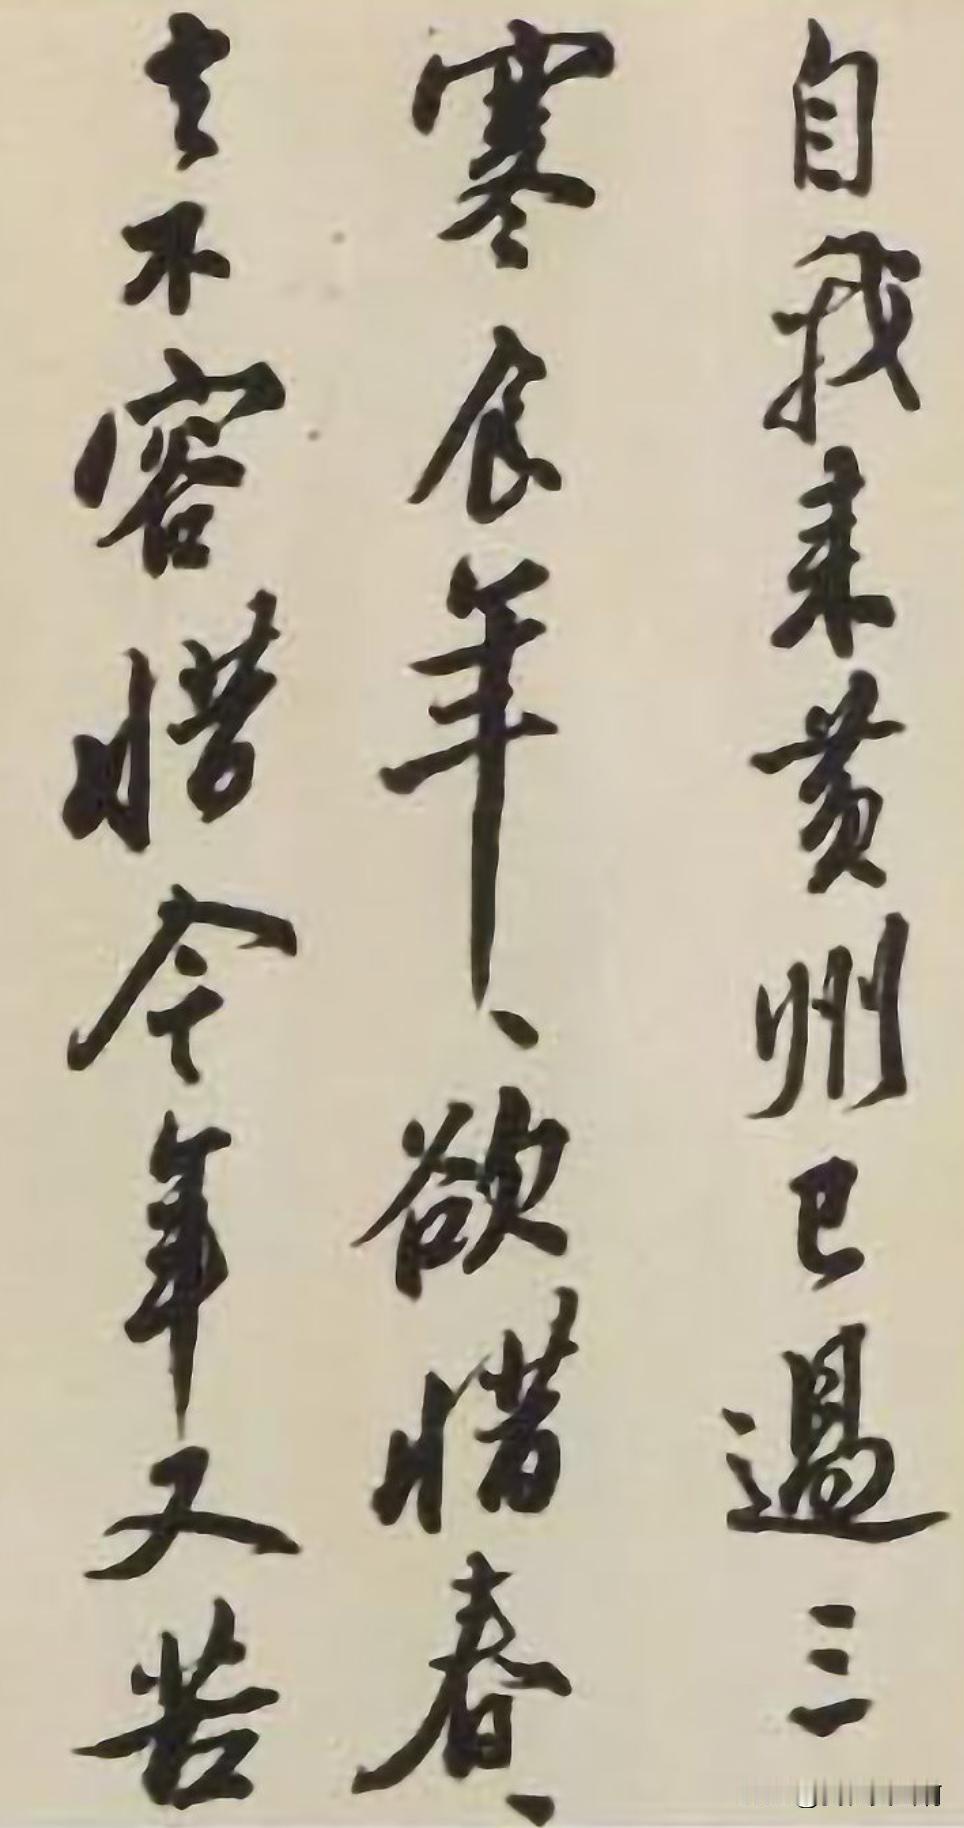 自我来黄州已過三
寒食年〻欲惜春〻
去不容惜今年又苦